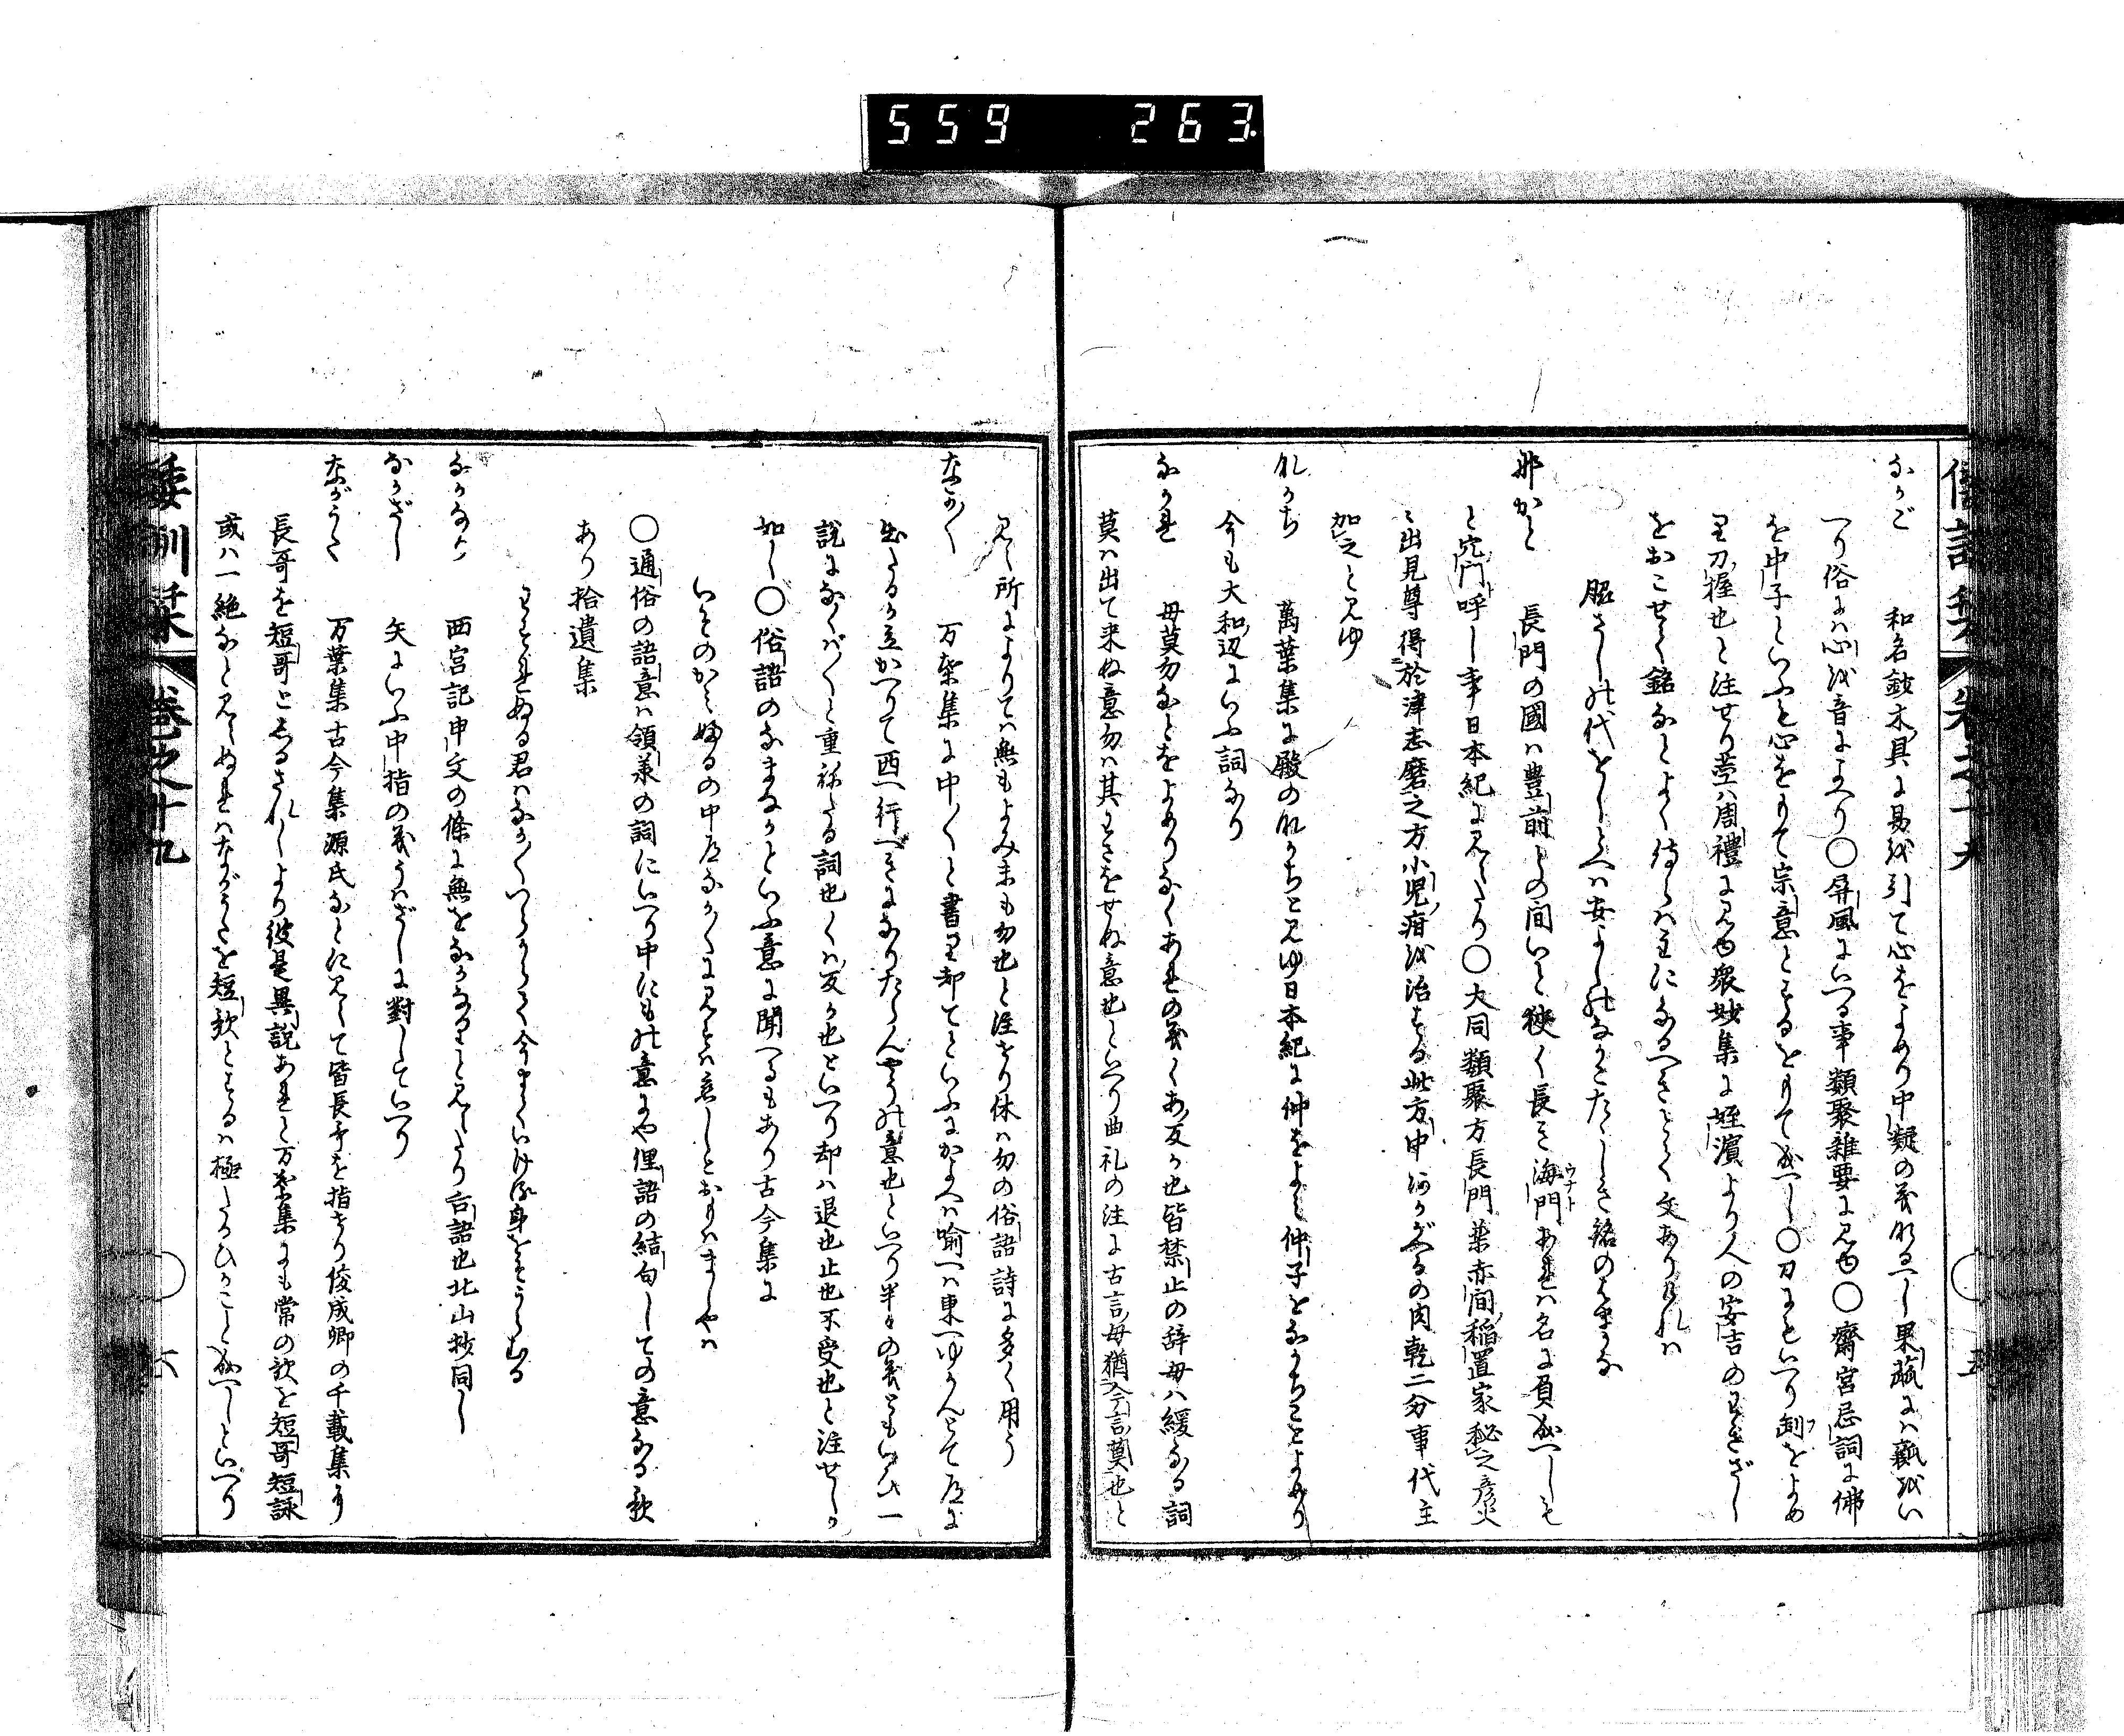 559 263
倭訓栞 巻之十九 五
なかご 和名鈔木具に曷を引て心をよめり中凝の義なるへし果蓏にハ瓤をい
へり俗にハ心を音によへり〇屏風にいへる事類聚雑要に見ゆ〇齋宮忌詞に佛
を中子といふも心をもて宗意とするをもて成へし〇刀にもいへり
り刀握也と注せり莖ハ周禮に見ゆ衆妙集に姪濱より人の安吉のわきざし
をおこせて銘なとよく侍らハ主になるへきとて文ありけれハ
脇さしの代をしとへハ安よしのなかこたゝしき銘のはまかな
那かと 長門の國ハ豊前との間いと狹く長き海門(ウナト)あれハ名に負成へしも
と穴門と呼し事日本紀に見えたり〇大同類聚方長門薬赤間稲置家秘之彦火
々出見尊得於津志麿之方小児疳を治する此方中
加之と見ゆ
なかち 萬葉集に殿のなかちと見ゆ日本紀に仲をよみ仲子をなかちことよめり
今も大和辺にいふ詞なり
なかれ 毋莫勿なとをよめりなくあれの義くあ反か也皆禁止の辞毋ハ緩なる詞
莫ハ出て来ぬ意勿ハ其わさをせぬ意也といへり曲礼の注に古言毋猶今言莫也と
見ゆ所によりてハ無もよみ末も勿也と注せり休ハ勿の俗語詩に多く用う
なか〱 万葉集に中〱と書り却てといふにかよへハ喩へハ東へゆかんとて
出たるか立かへりて西へ行へきになりたらんやうの意也といへり半〻の義ともいへり一
説になくば〱と重ねたる詞也くハ反か也といへり却ハ退也止也不受也と注せしか
如し〇俗語のなまなかといふ意に聞へるもあり古今集に
いそのかみふるの中道なか〱に見すハ恋しとおもハましやハ
〇通俗の語意ハ領承の詞にいへり中にもの意にや俚語の結句しての意なる歌
あり拾遺集
わすれぬる君ハなか〱つらからて今まていける身をそうらむる
なかなり 西宮記申文の條に無をなかなりと見えたり言語也北山抄同し
なかざし 矢にいふ中指の義うハざしに對していへり
ながうた 万葉集古今集源氏なとに見えて皆長哥を指せり俊成卿の千載集に
長哥を短哥としるされしより彼是異説あれと万葉集にも常の歌を短哥短詠
或ハ一絶なと見えぬれハながうたを短歌とするハ極たるひかこと成へしといへり
倭訓栞 巻之十九 六